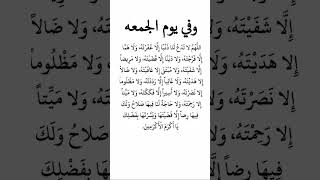 وفي يوم الجمعه
اللَّهُمَّ لا تَدَعْ لَنَا ذَنْباً إِلَّا غَفَرْتَهُ، وَلا هَمّاً
إِلَّا فَرَّجْتَهُ، وَلا دَيْناً إِلَّا قَضَيْتَهُ، وَلا مَرِيضاً
إِلَّا شَفَيْتَهُ، وَلا مُبْتَلىً إِلَّا عَافَيْتَهُ، وَلا ضَالاً
إِلَّا هَدَيْتَهُ، وَلا غَائِباً إِلَّا رَدَدْتَهُ، وَلا مَظْلُوماً
إِلا نَصَرْتَهُ، وَلا أَسِيراً إِلَّا فَكَكْتَهُ، وَلا مَيِّتاً
إِلا رَحِمْتَهُ، وَلا حَاجَةً لَنَا فِيهَا صَلاحٌ وَلَكَ
فِيهَا رِضاً إِلَّا قَضَيْتَهَا وَيَسَّرْتَهَا بِفَضْلِكَ
يَا أَكْرَمَ الأَكْرَمِينَ.
شَفَيْتَهُ
إِلَّا
وَلا ضَالاً
هَدَيْتَهُ
إِلَّا
مَظْلُوماً
نَصَرْتَهُ
إِلا
مَيِّتاً
رَحِمْتَهُ
إِلا
وَلَكَ
فِيهَا رِضاً
بِفَضْلِكَ